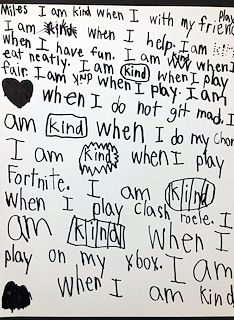 Miles I am kind when I with my friend Play
I am kind when I help. I am kind
when I have fun. I am when I
eat neatly. I am kind when I play
fair. I am kind when I play. I am
when I do not git mad. I
am kind when I do my chor
I am kind when I play
Fortnite. I am kind
when I play Clash roele. I
am kind when I
play on my xbox. I am
when I am kind